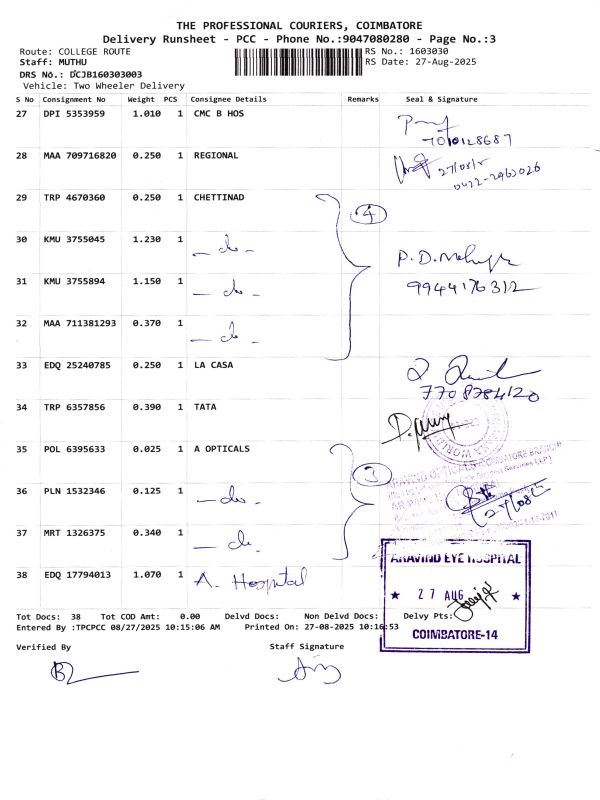 THE PROFESSIONAL COURIERS, COIMBATORE
Delivery Runsheet - PCC - Phone No.:9047080280 - Page No.:3
Route: COLLEGE ROUTE RS No.: 1603030
Staff: MUTHU RS Date: 27-Aug-2025
DRS No.: DCJB160303003
Vehicle: Two Wheeler Delivery
S No Consignment No Weight PCS Consignee Details Remarks Seal & Signature
27 DPI 5353959 1.010 1 CMC B HOS
7010128687
28 MAA 709716820 0.250 1 REGIONAL
27/08/25
0422-2963026
29 TRP 4670360 0.250 1 CHETTINAD
4
30 KMU 3755045 1.230 1 - do -
P.D.
31 KMU 3755894 1.150 1 - do -
9944176312
32 MAA 711381293 0.370 1 - do -
33 EDQ 25240785 0.250 1 LA CASA
7708784120
34 TRP 6357856 0.390 1 TATA
35 POL 6395633 0.025 1 A OPTICALS
3
36 PLN 1532346 0.125 1 - do -
27/08/25
37 MRT 1326375 0.340 1 - do -
38 EDQ 17794013 1.070 1 A. Hospital
ARAVIND EYE HOSPITAL
★ 27 AUG ★
COIMBATORE-14
Tot Docs: 38 Tot COD Amt: 0.00 Delvd Docs: Non Delvd Docs: Delvy Pts:
Entered By :TPCPCC 08/27/2025 10:15:06 AM Printed On: 27-08-2025 10:16:53
Verified By Staff Signature